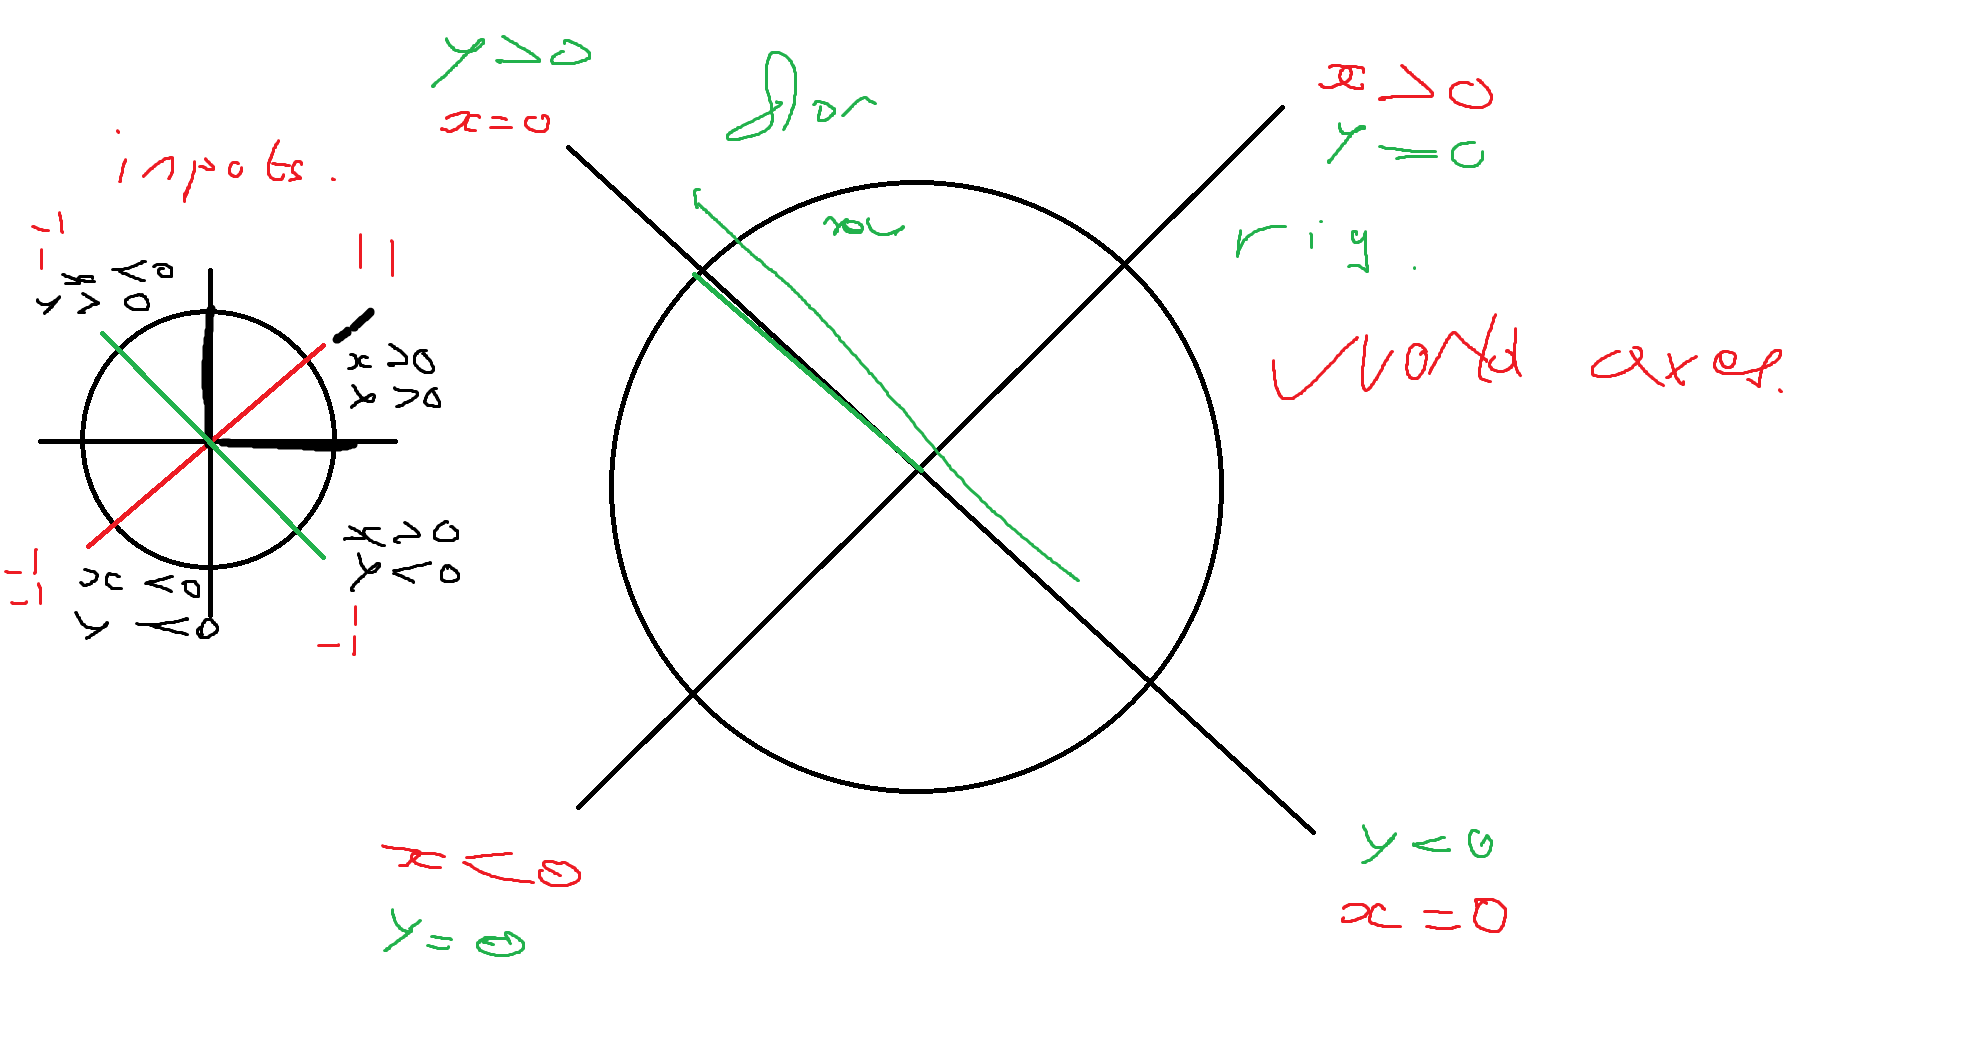 inpots.
-1
1
x <0
y > 0
1 1
x >0
y >0
-1
-1
x <0
y <0
x >0
y <0
1
-1
y >0
x=0
for
x >0
y =0
rig.
World axes.
x <0
y = 0
y <0
x =0